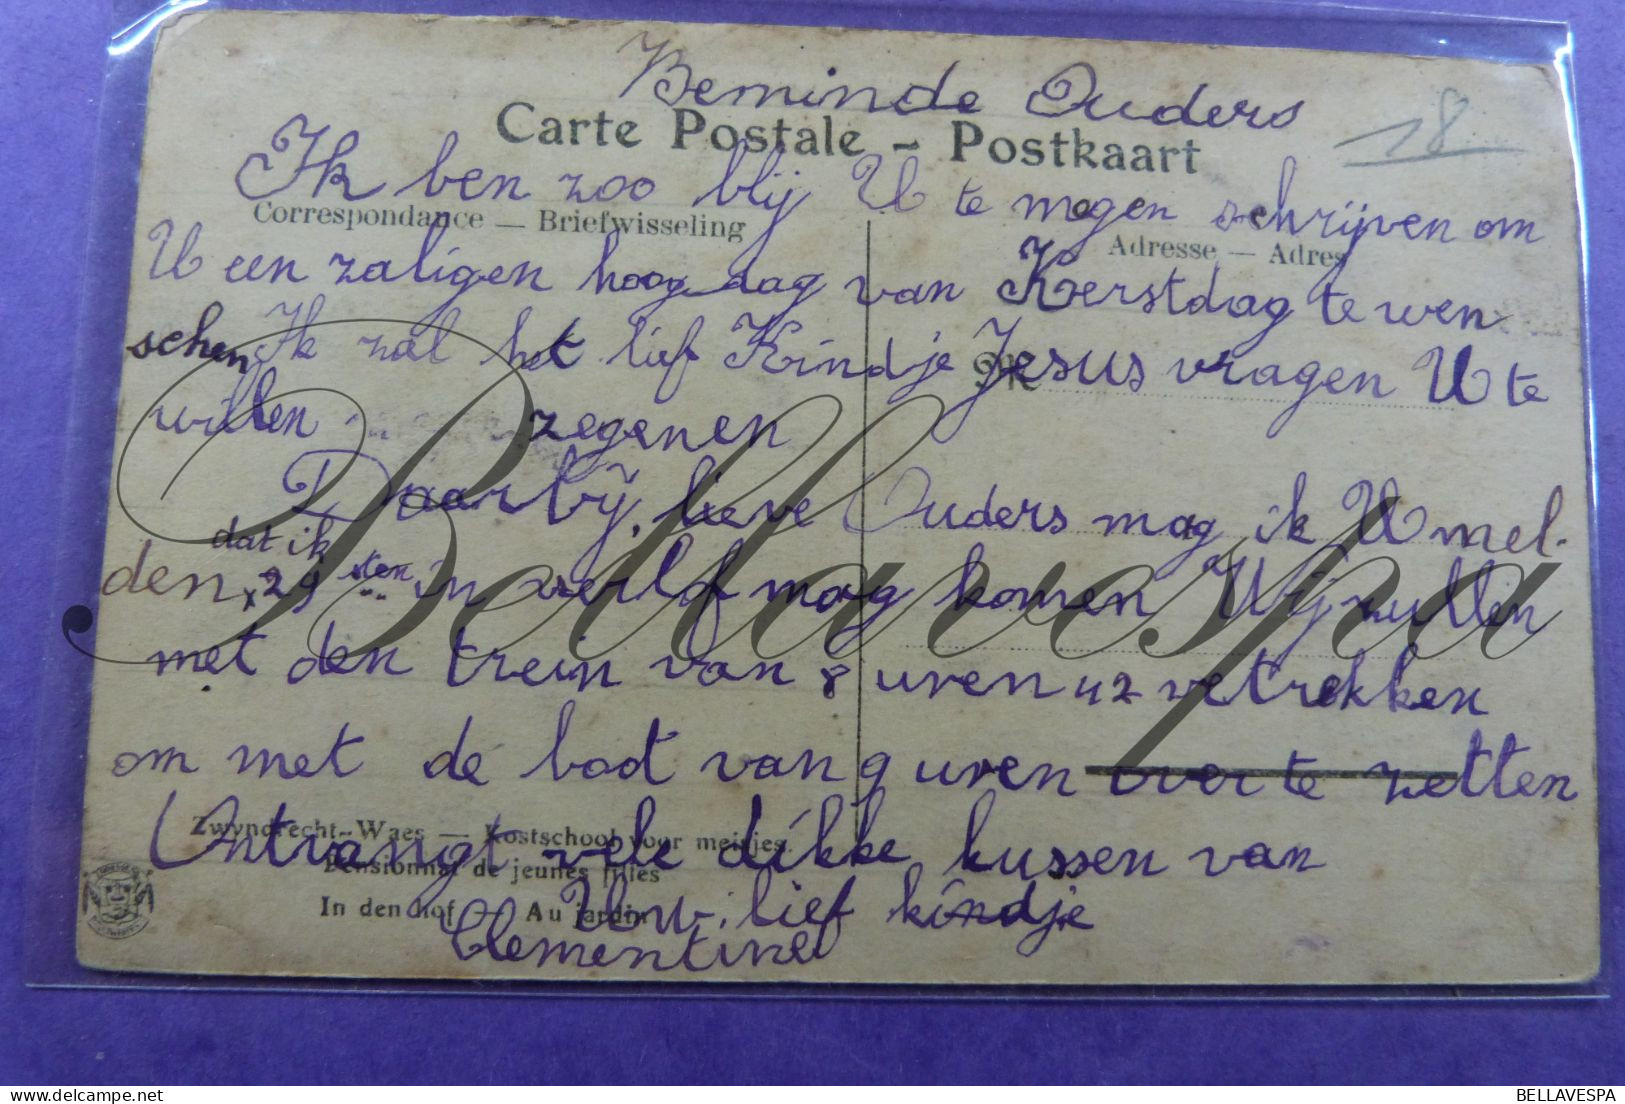 Beminde Ouders
Carte Postale - Postkaart
18
Ik ben zoo blij U te mogen schrijven om
Correspondance — Briefwisseling
Adresse — Adres
U een zaligen hoogdag van Kerstdag te wen
schen Ik zal het lief Kindje Jesus vragen U te
willen zegenen
Daarbij, lieve Ouders mag ik U mel-
dat ik
den x 29 sten in verlof mag komen Wij zullen
met den trein van 8 uren 42 vetrekken
om met de boot van 9 uren over te zetten
Zwyndrecht-Waes — Kostschool voor meisjes.
Ontvangt vele dikke kussen van
Pensionnat de jeunes filles
In den hof — Au jardin
Uw lief kindje
Clementine
Bellavespa
BELLAVESPA